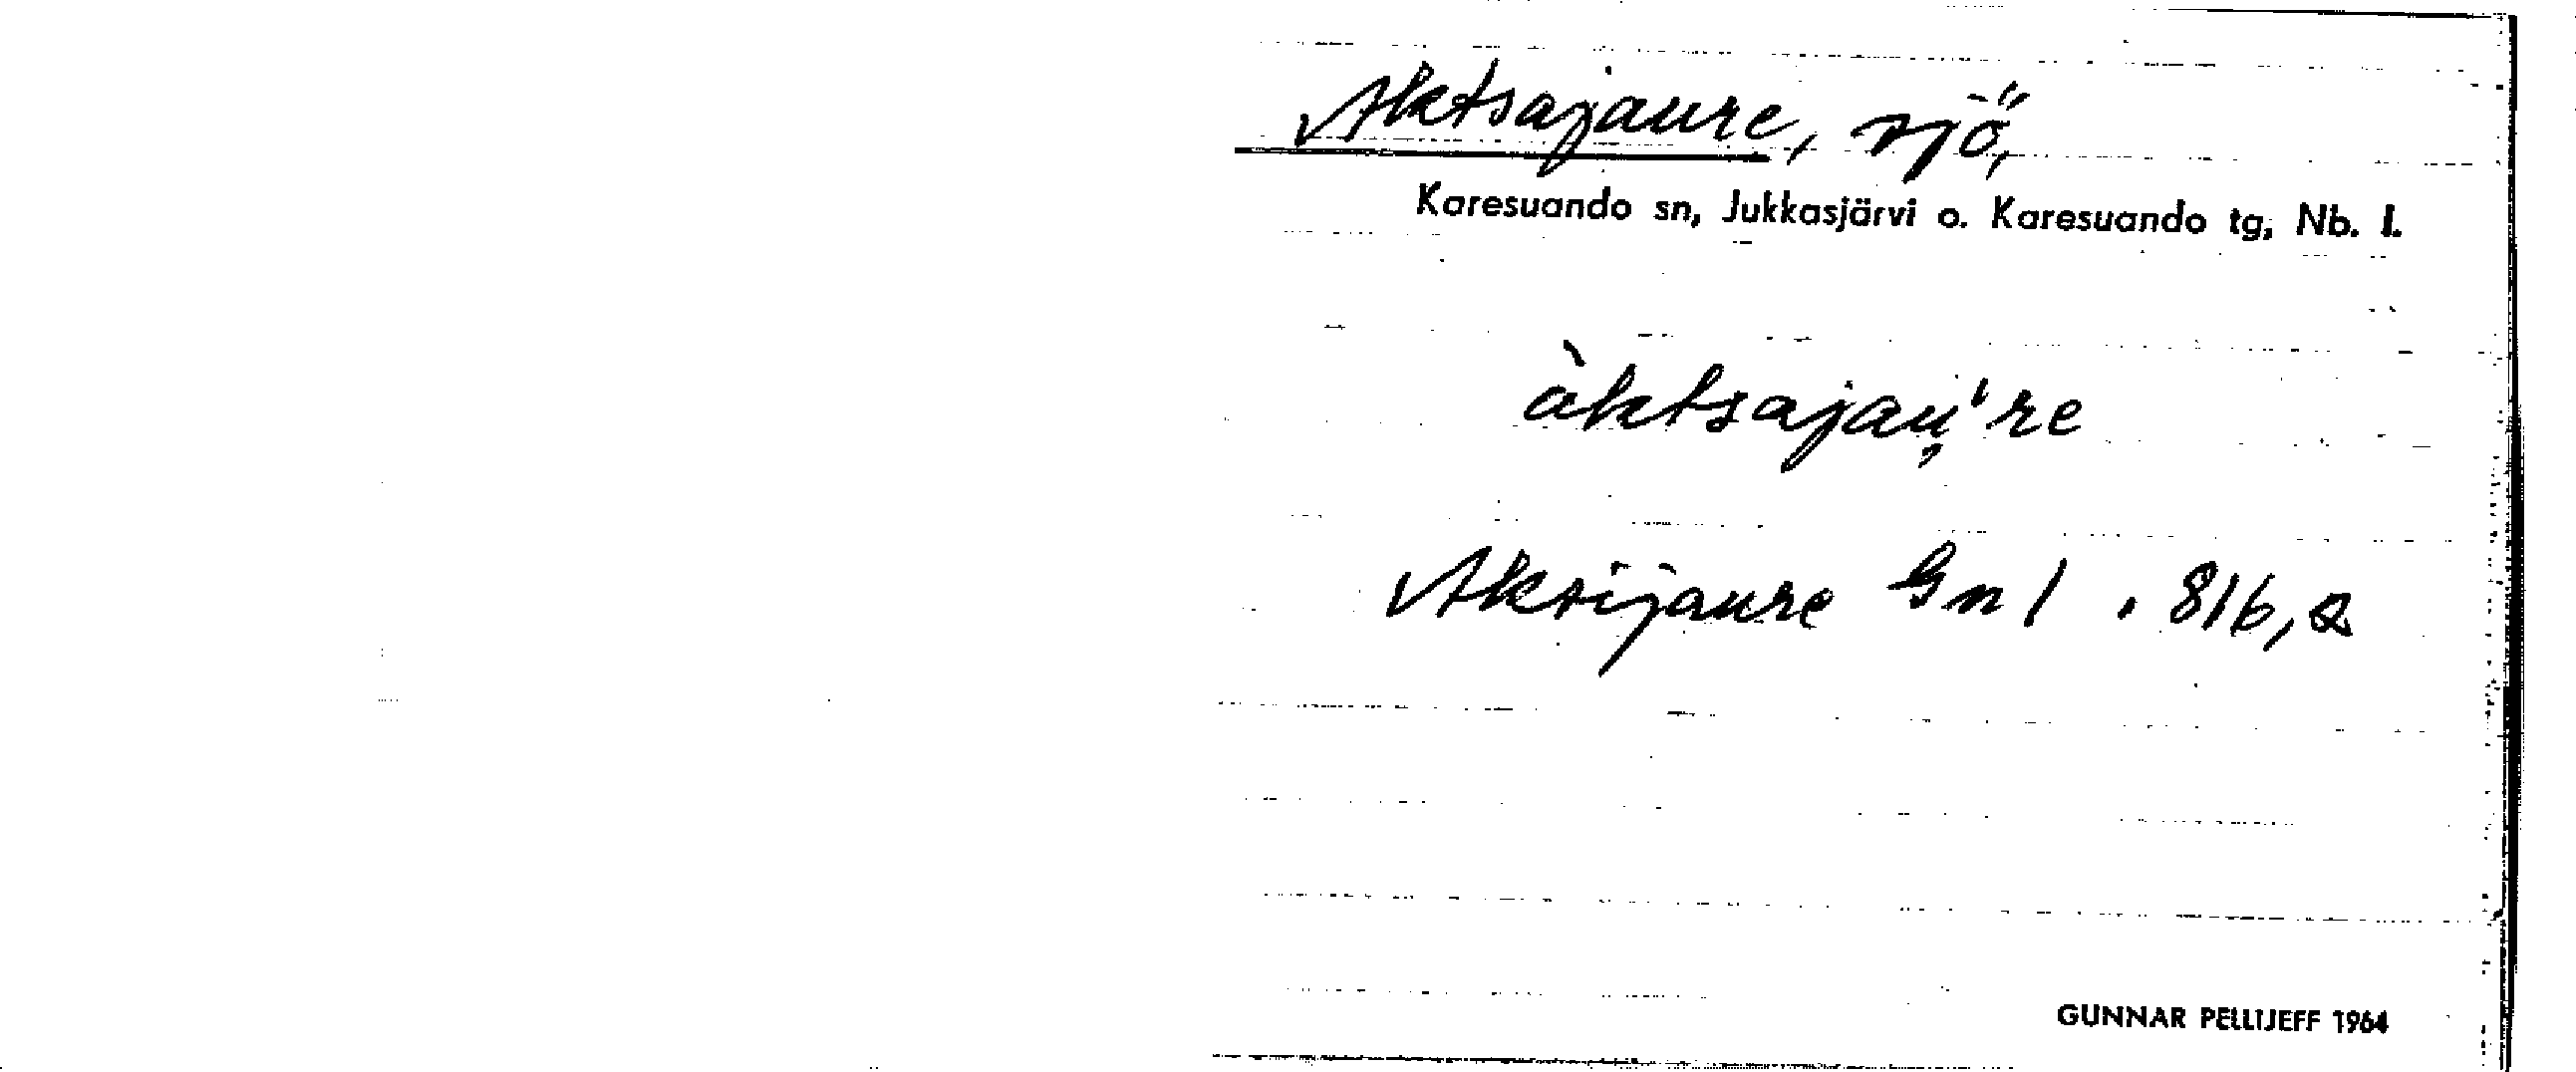 Aktsajaure, sjö,
Karesuando sn, Jukkasjärvi o. Karesuando tg, Nb. l.
àktsajau̯'re
Aksijaure Gn 1 . 816,2
GUNNAR PELLIJEFF 1964